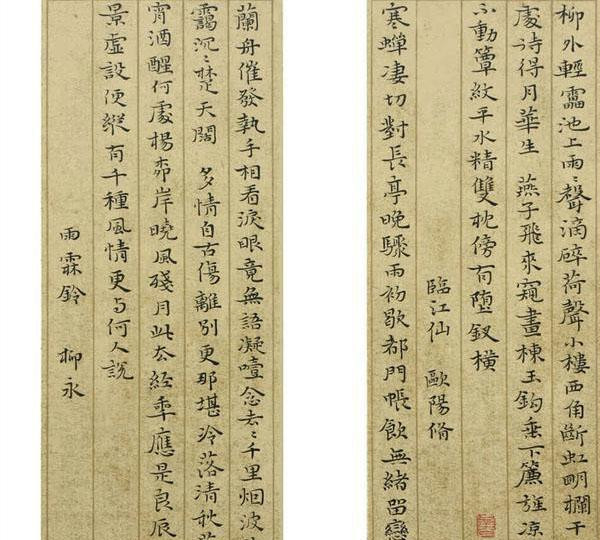 柳外輕靁池上雨〻聲滴碎荷聲小樓西角斷虹眀欄干
處待得月華生 燕子飛來窺畫棟玉鈎垂下簾旌凉
不動簟紋平水精雙枕傍有墮釵橫
臨江仙 歐陽脩
寒蟬凄切對長亭晚驟雨初歇都門帳飲無緒留戀
蘭舟催發執手相看淚眼竟無語凝噎念去〻千里烟波
靄沉〻楚天闊 多情自古傷離別更那堪泠落清秋
宵酒醒何處楊桺岸曉風殘月此去經年應是良辰
景虛設便縱有千種風情更与何人說
雨霖鈴 柳永